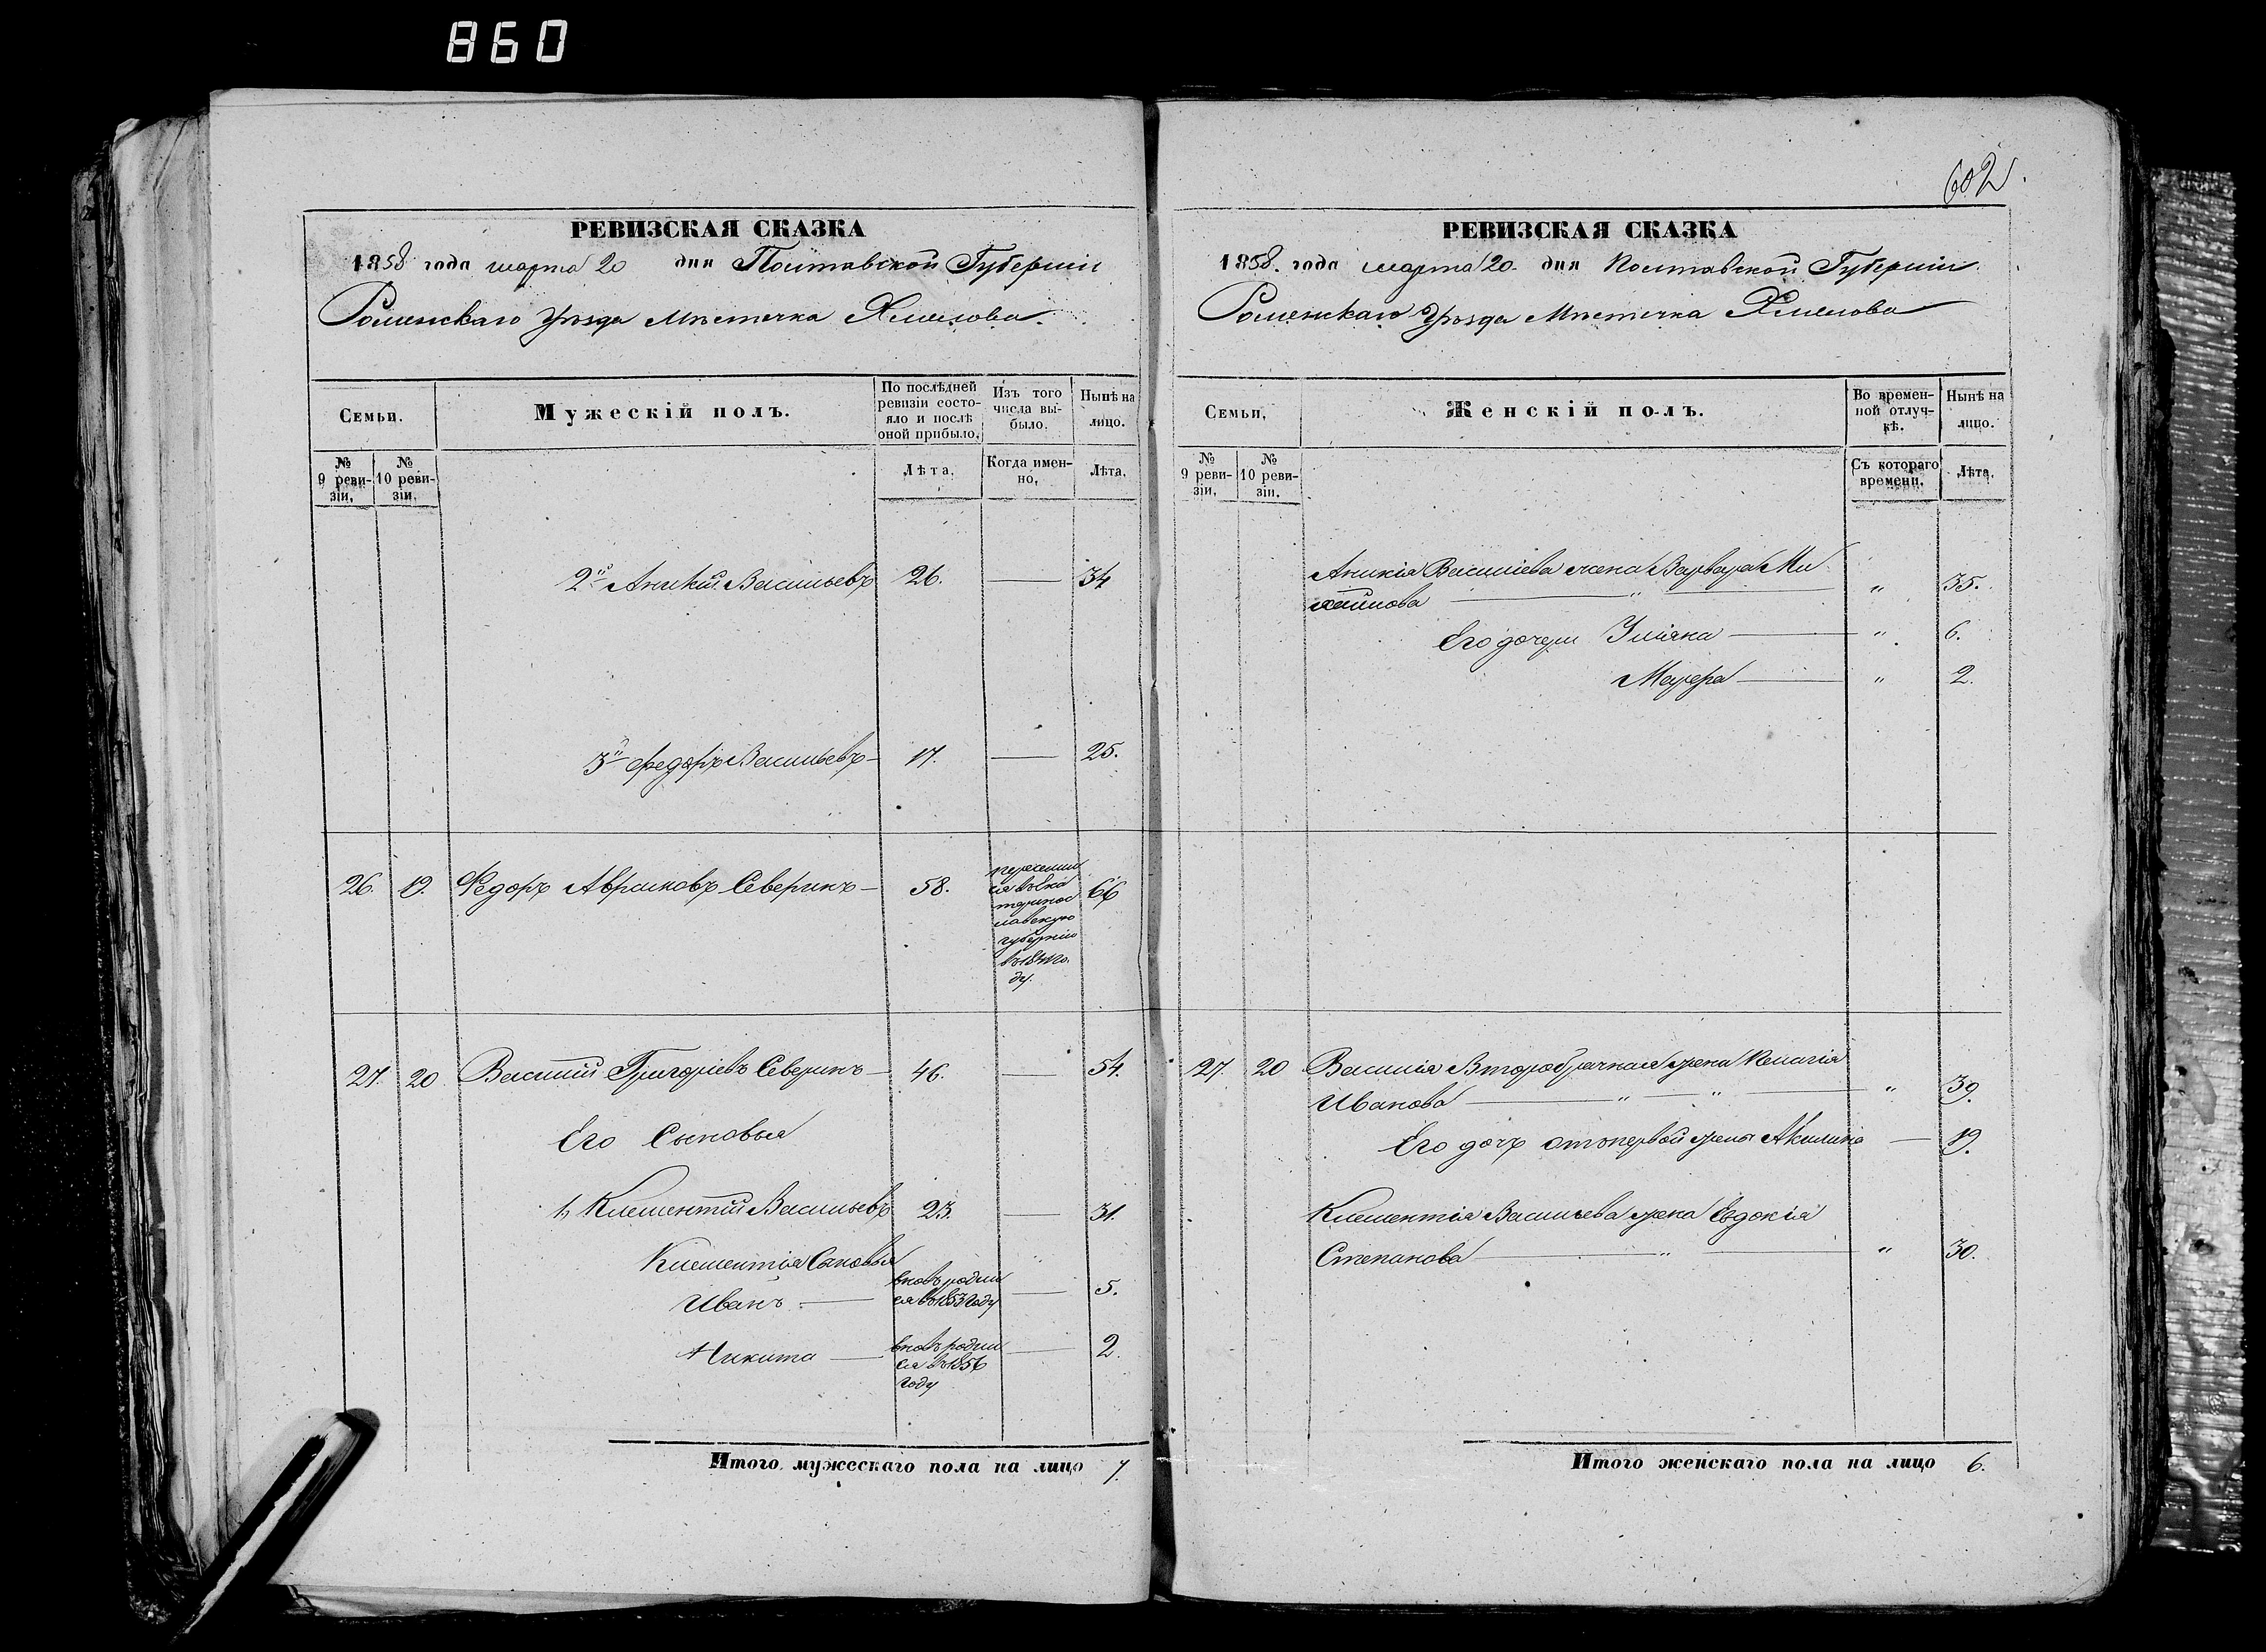 860
602
РЕВИЗСКАЯ СКАЗКА
1858 года марта 20 дня Полтавской Губерніи
Роменскаго Уѣзда Мѣстечка Хмелова
Семьи.
Мужескій полъ.
По послѣдней ревизіи состо-
яло и послѣ оной прибыло.
Изъ того числа вы-
было.
Нынѣ на лицо.
№ 9 реви-
зіи.
№ 10 реви-
зіи.
Лѣта.
Когда имен-
но.
Лѣта.
2й Аникій Васильевъ 26. — 34
3й Федоръ Васильевъ — 17. — 25.
26. 19. Федоръ Авраамовъ Северинъ — 58. 66
переселил
ся въ Ека
теринос
лавскую
губернію
ду.
27. 20 Василій Григоріевъ Северинъ — 46. — 54.
Его Сыновья
1, Климентій Васильевъ 23. — 31.
Климентія Сыновья
Иванъ — вновь родил
ся въ 1853 году — 5.
Никита — вновь родил
ся въ 1856
году — 2.
Итого мужескаго пола на лицо 7.
РЕВИЗСКАЯ СКАЗКА
1858. года марта 20. дня Полтавской Губерніи
Роменскаго Уѣзда Мѣстечка Хмелова
Семьи.
Женскій полъ.
Во времен-
ной отлуч-
кѣ.
Нынѣ на лицо.
№ 9 реви-
зіи.
№ 10 реви-
зіи.
Съ котораго времени.
Лѣта.
Аникія Василіева жена Варвара Ми
хайлова — " — " 35.
Его дочери Уліяна — " 6.
Мавра — " 2.
27. 20 Василія Второбрачная жена Пелагія
Иванова — " — " — " 39.
Его дочь отъ первой жены Акилина — 19.
Климентія Васильева жена Евдокія
Степанова — " — " 30.
Итого женскаго пола на лицо 6.